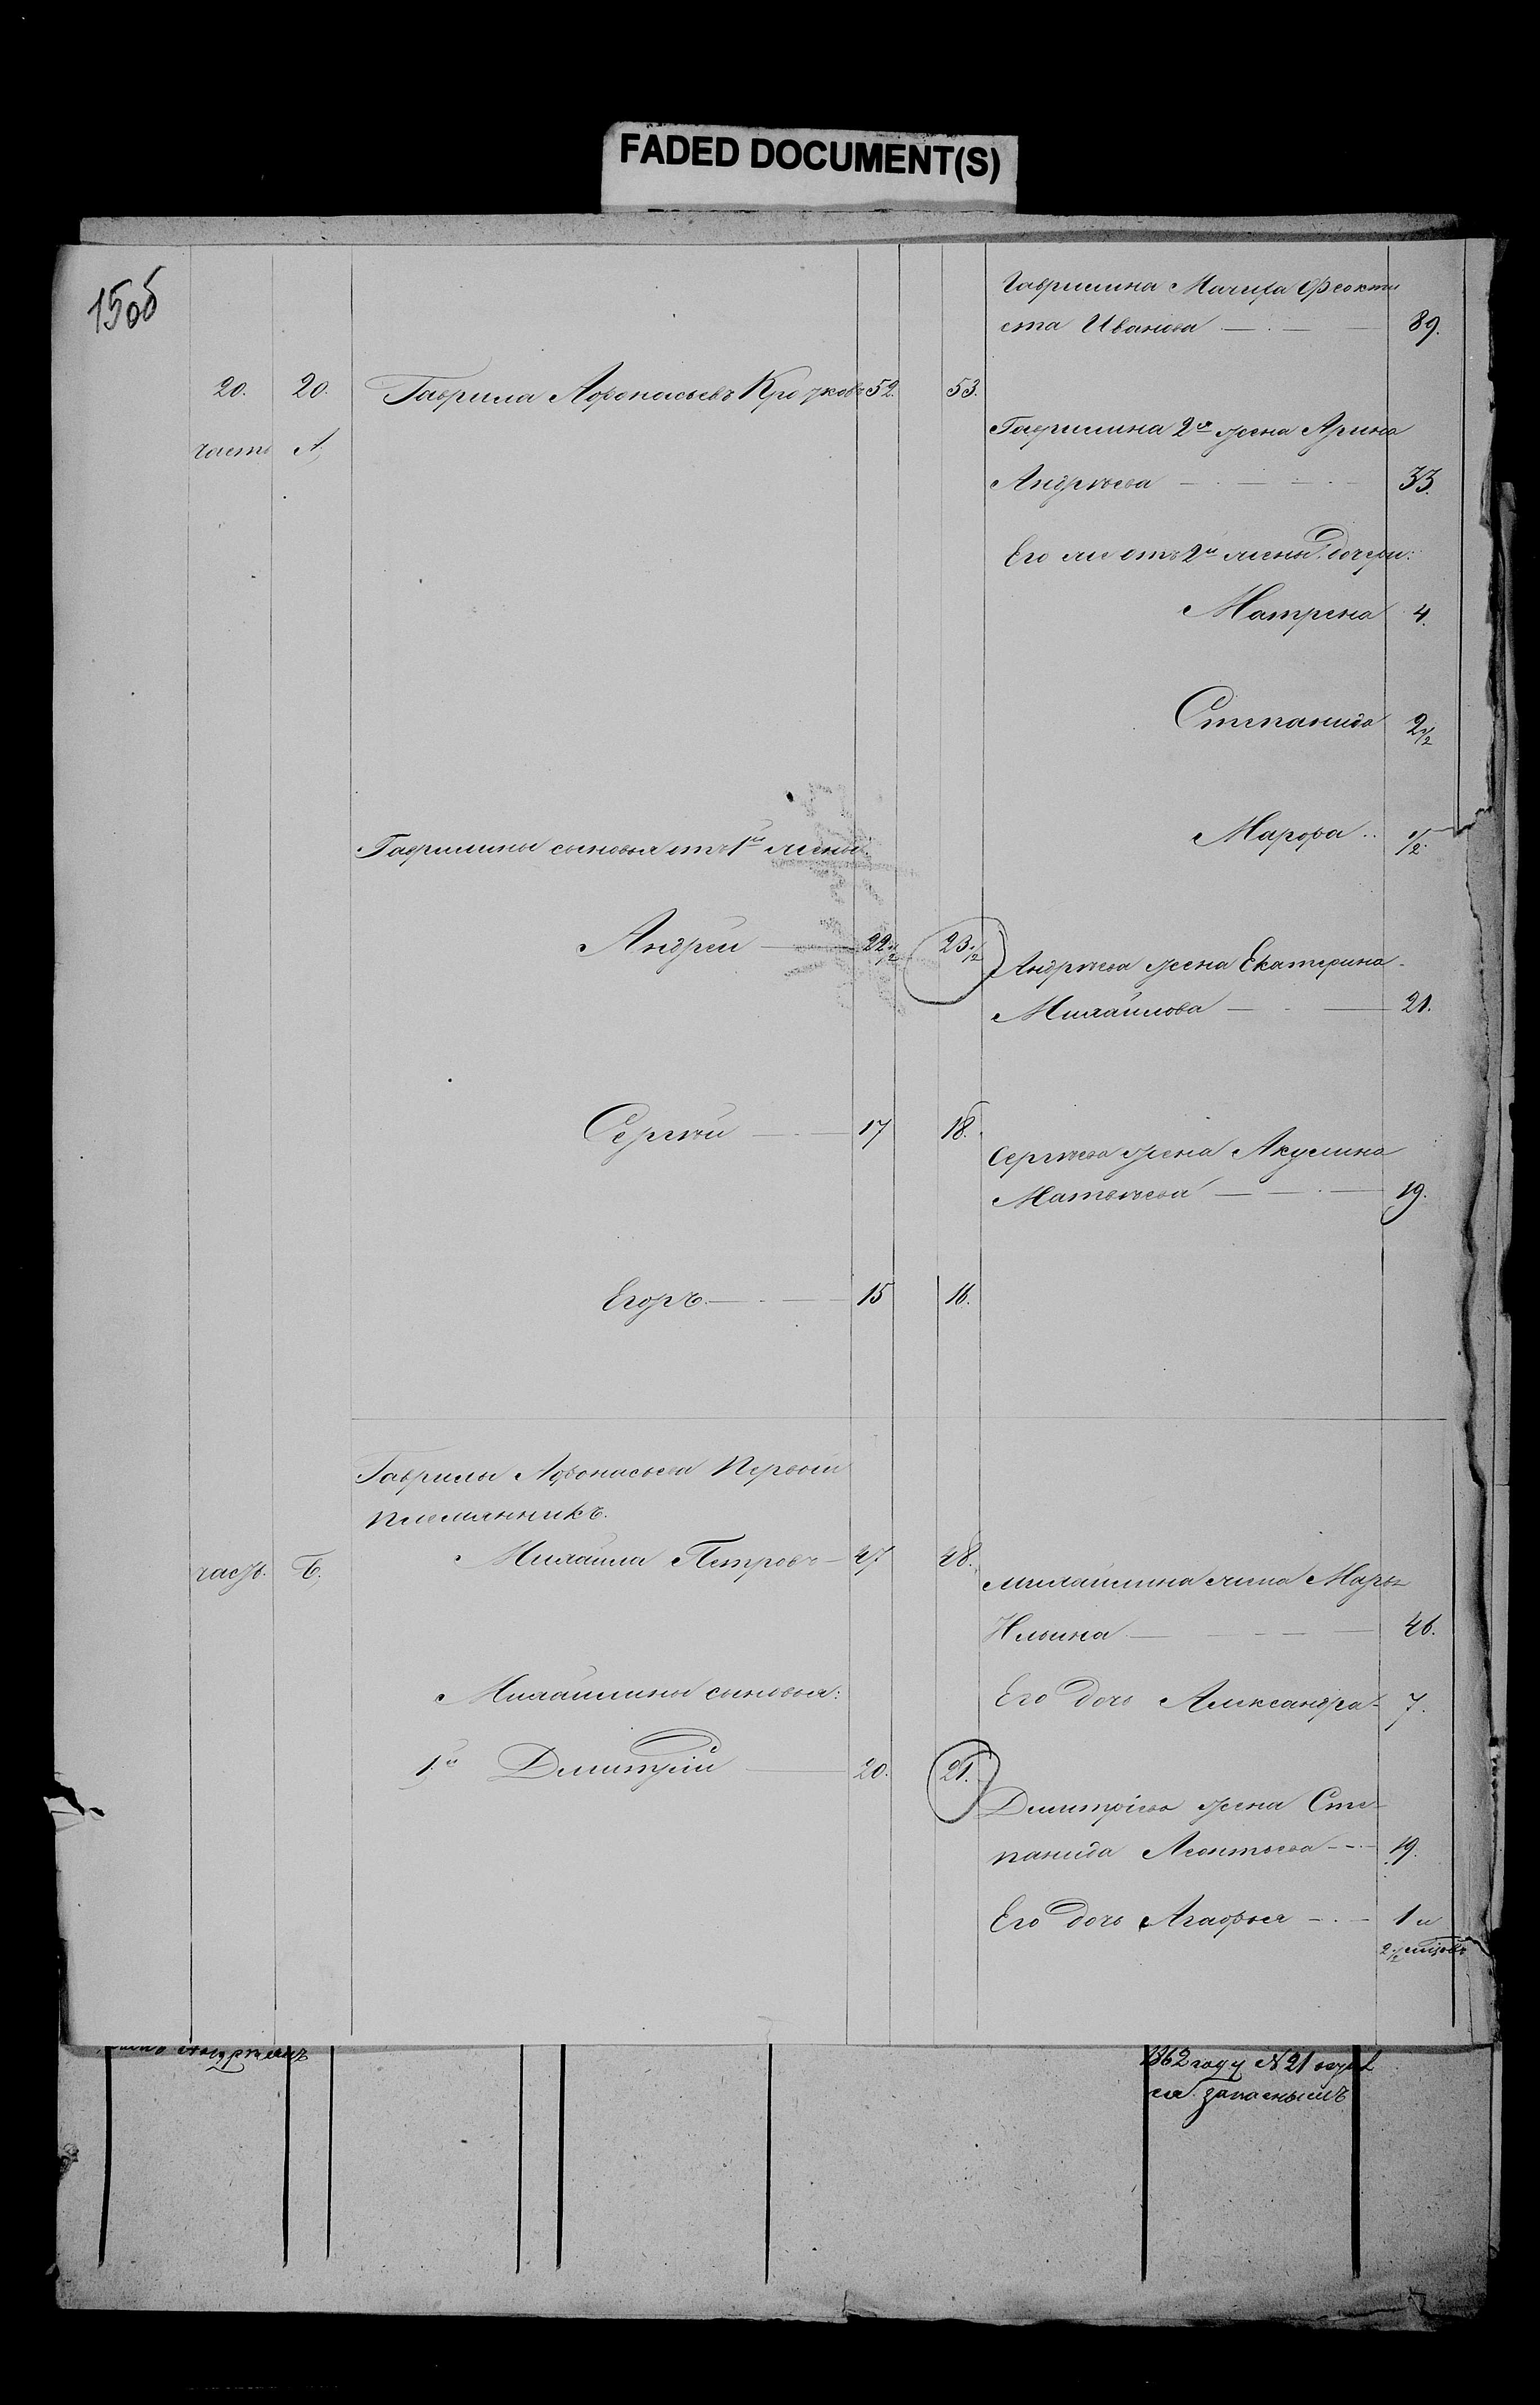 FADED DOCUMENT(S)
15об
Гаврилина Мачиха Феокти
ста Иванова 89.
20. 20. Гаврила Афонасьевъ 52. 53.
часть А,
Гаврилина 2я жена Арина
Андреева 33.
Его же отъ 2й жены дочери:
Матрена 4.
Степанида 2 1/2
Марфа 1/2
Гаврилины сыновья отъ 1й жены:
Андрей 22 1/2 23 1/2
Андреева жена Екатерина
Михайлова 21.
Сергѣй 17 18.
Сергѣева жена Акулина
Матвѣева 19.
Егоръ 15 16.
Гаврилы Афонасьева Первый
племянникъ.
часть. Б, Михайла Петровъ 47 48.
Михайлина жена Марья
Ильина 46.
Михайлины сыновья:
Его дочь Александра 7.
1й Димитрій 20. 21.
Димитріева жена Сте-
панида Леонтьева 19.
Его дочь Агафья 1 и
2 1/2 мѣсяцовъ
1862 году N 21
запаснымъ